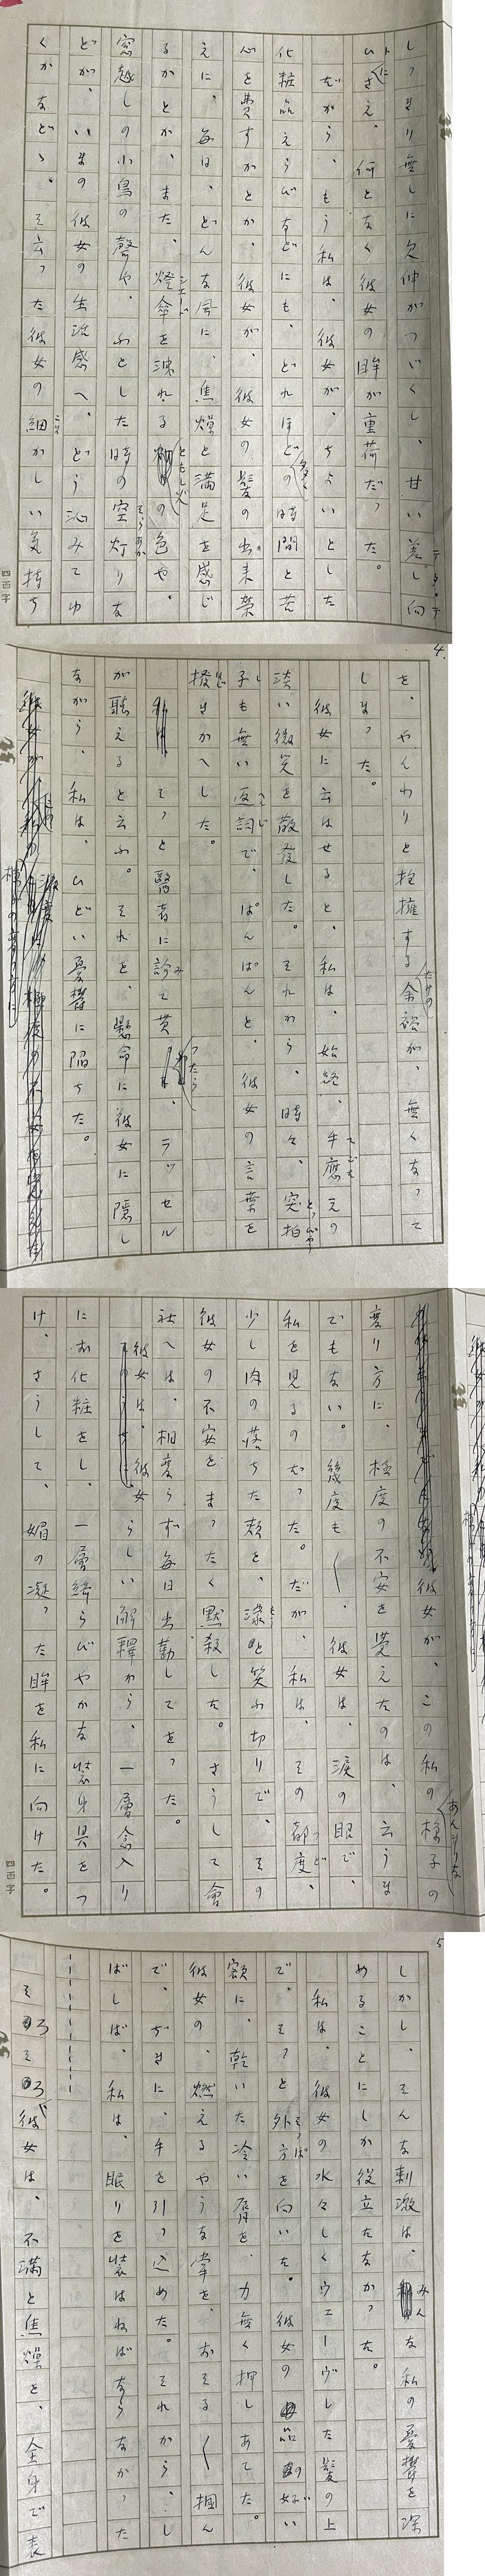 しつきり無しに欠伸がつゞくし、甘い差し向
ひにさえ、何となく彼女の眸が重荷だつた。
だから、もう私は、彼女が、ちよいとした
化粧品えらびなどにも、どれほど多くの時間と苦
心を費すかとか、彼女が、彼女の髪の出来栄
えに、毎日、どんな風に、焦燥と満足を感じ
るかとか、また、燈傘を洩れるともし火の色や、
窓越しの小鳥の聲や、ふとした時の空灯りな
どが、いまの彼女の生活感へ、どう沁みてゆ
くかなど、そ云つた彼女の細かしい気持ち
四百字
4.
を、やんわりと抱擁するだけの余裕が、無くなつて
しまつた。
彼女に云はせると、私は、始終、手應えの
淡い微笑を散發した。それから、時々、突拍
子も無い返詞で、ぱんぱんと、彼女の言葉を
撥きかへした。
そつと醫者に診て貰つたら、ラッセル
が聽えると云ふ。それを、懸命に彼女に隠し
ながら、私は、ひどい憂鬱に陥ちた。
彼女が、この私のあんまりな様子の
変り方に、極度の不安を覚えたのは、云うま
でもない。幾度も〱、彼女は、涙の眼で、
私を見るのだつた。だが、私は、その都度、
少し肉の落ちた頬を、淡と笑ふ切りで、その
彼女の不安をまつたく黙殺した。さうして會
社へは、相変らず毎日出勤してをつた。
彼女は、彼女らしい解釋から、一層念入り
にお化粧をし、一層綺らびやかな装身具をつ
け、さうして、媚の凝つた眸を私に向けた。
四百字
5
しかし、そんな刺激は、みんな私の憂鬱を深
めることにしか役立たなかつた。
私は、彼女の水々しくウエーヴした髪の上
で、そつと外方を向いた。彼女の品の好い
額に、乾いた冷い唇を、力無く押しあてた。
彼女の、燃えるやうな掌を、おそる〱掴ん
で、ぢきに、手を引つ込めた。それから、し
ばしば、私は、眠りを装はねばならなかつた
そろそろ彼女は、不満と焦燥を、全身で表